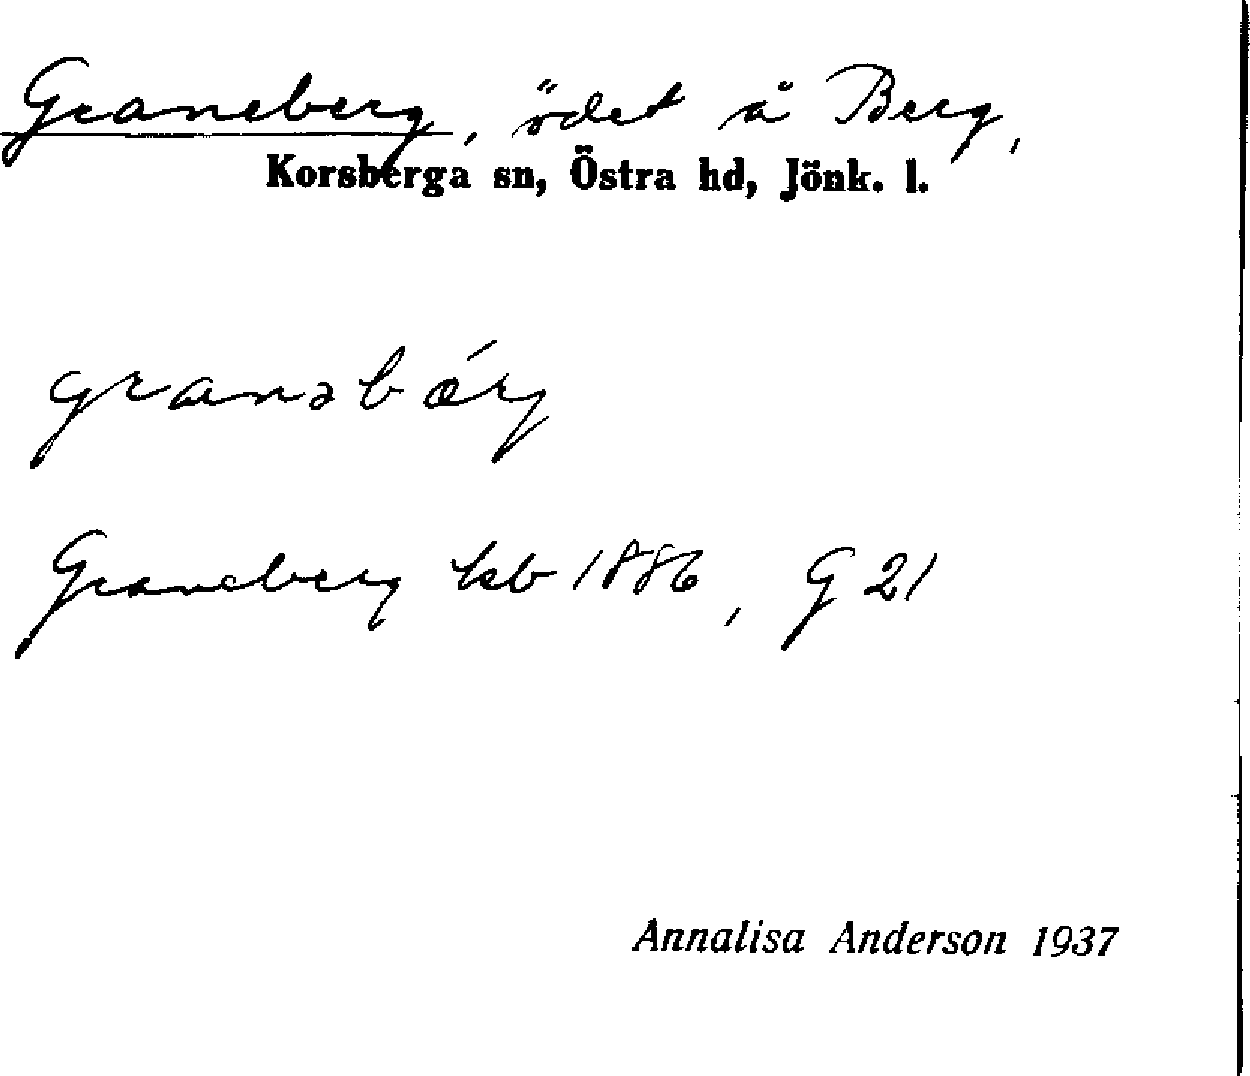 Graneberg, ödet å Berg,
Korsberga sn, Östra hd, Jönk. l.
granəbǽrj
Graneberg kb 1886, G 21
Annalisa Anderson 1937